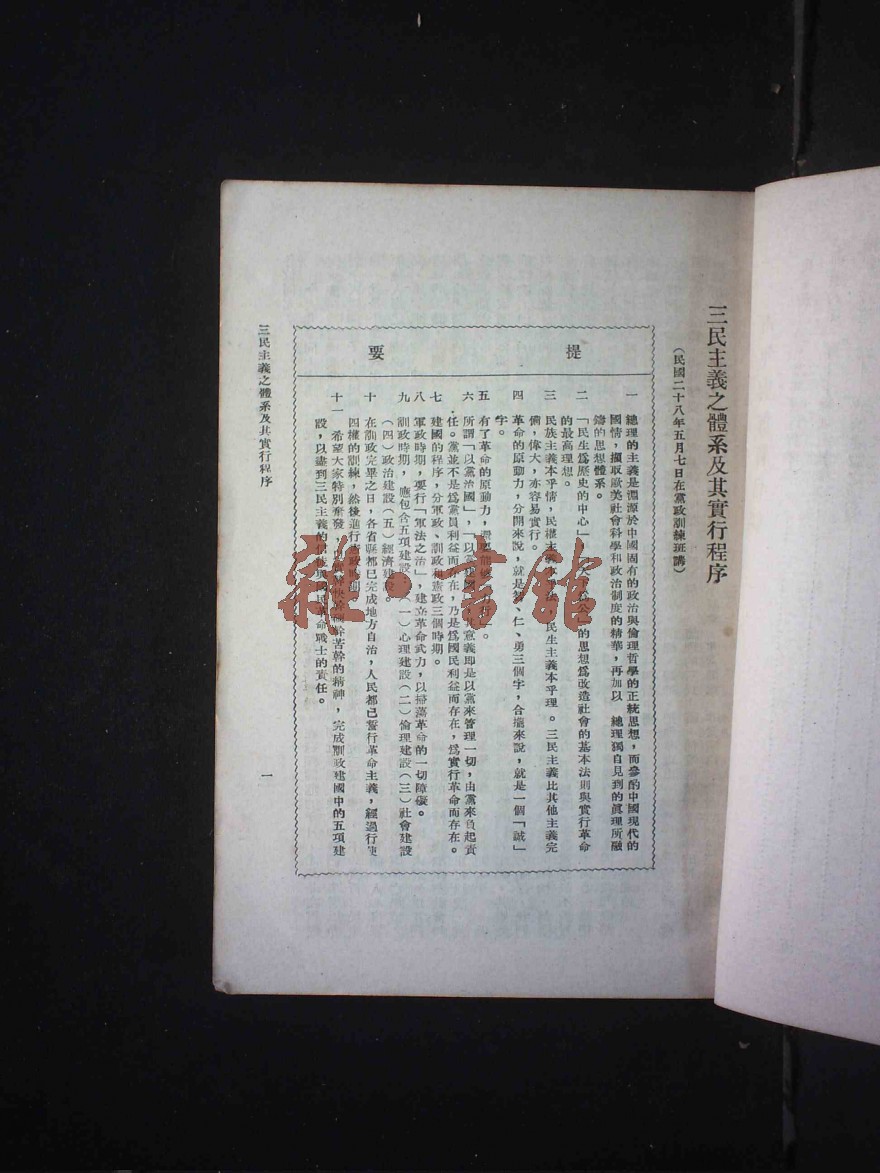 三民主義之體系及其實行程序
（民國二十八年五月七日在黨政訓練班講）
提要
一　總理的主義是淵源於中國固有的政治與倫理哲學的正統思想，而參酌中國現代的
國情，擷取歐美社會科學和政治制度的精華，再加以　總理獨自見到的眞理所融
鑄的思想體系。
二　「民生爲歷史的中心」
公」的思想爲改造社會的基本法則與實行革命
的最高理想。
三　民族主義本乎情，民權主義
民生主義本乎理。三民主義比其他主義完
備，偉大，亦容易實行。
四　革命的原動力，分開來說，就是智、仁、勇三個字，合攏來說，就是一個「誠」
字。
五　有了革命的原動力，
六　所謂「以黨治國」，「以黨建國」，其意義卽是以黨來管理一切，由黨來負起責
任。黨並不是爲黨員利益而存在，乃是爲國民利益而存在，爲實行革命而存在。
七　建國的程序，分軍政、訓政和憲政三個時期。
八　軍政時期，要行「軍法之治」，建立革命武力，以掃蕩革命的一切障礙。
九　訓政時期，應包含五項建設：（一）心理建設（二）倫理建設（三）社會建設
（四）政治建設（五）經濟建設。
十　在訓政完畢之日，各省縣都已完成地方自治，人民都已誓行革命主義，經過行使
四權的訓練，然後進行憲政時期。
十一　希望大家特別奮發，
幹快幹
幹苦幹的精神，完成訓政建國中的五項建
設，以盡到三民主義的信徒與國民革命戰士的責任。
三民主義之體系及其實行程序
一
雜·書館